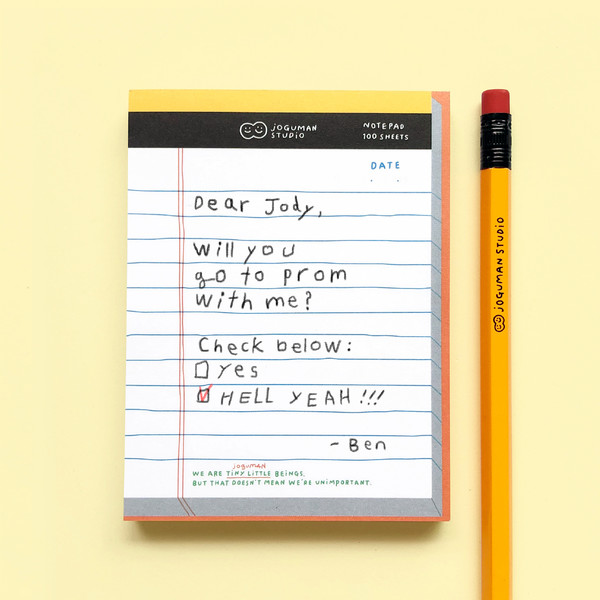 JOGUMAN
STUDIO
NOTEPAD
100 SHEETS
DATE
Dear Jody,
Will you
go to prom
with me?
Check below:
Yes
HELL YEAH!!!
- Ben
JOGUMAN
WE ARE TINY LITTLE BEINGS,
BUT THAT DOESN'T MEAN WE'RE UNIMPORTANT.
JOGUMAN STUDIO